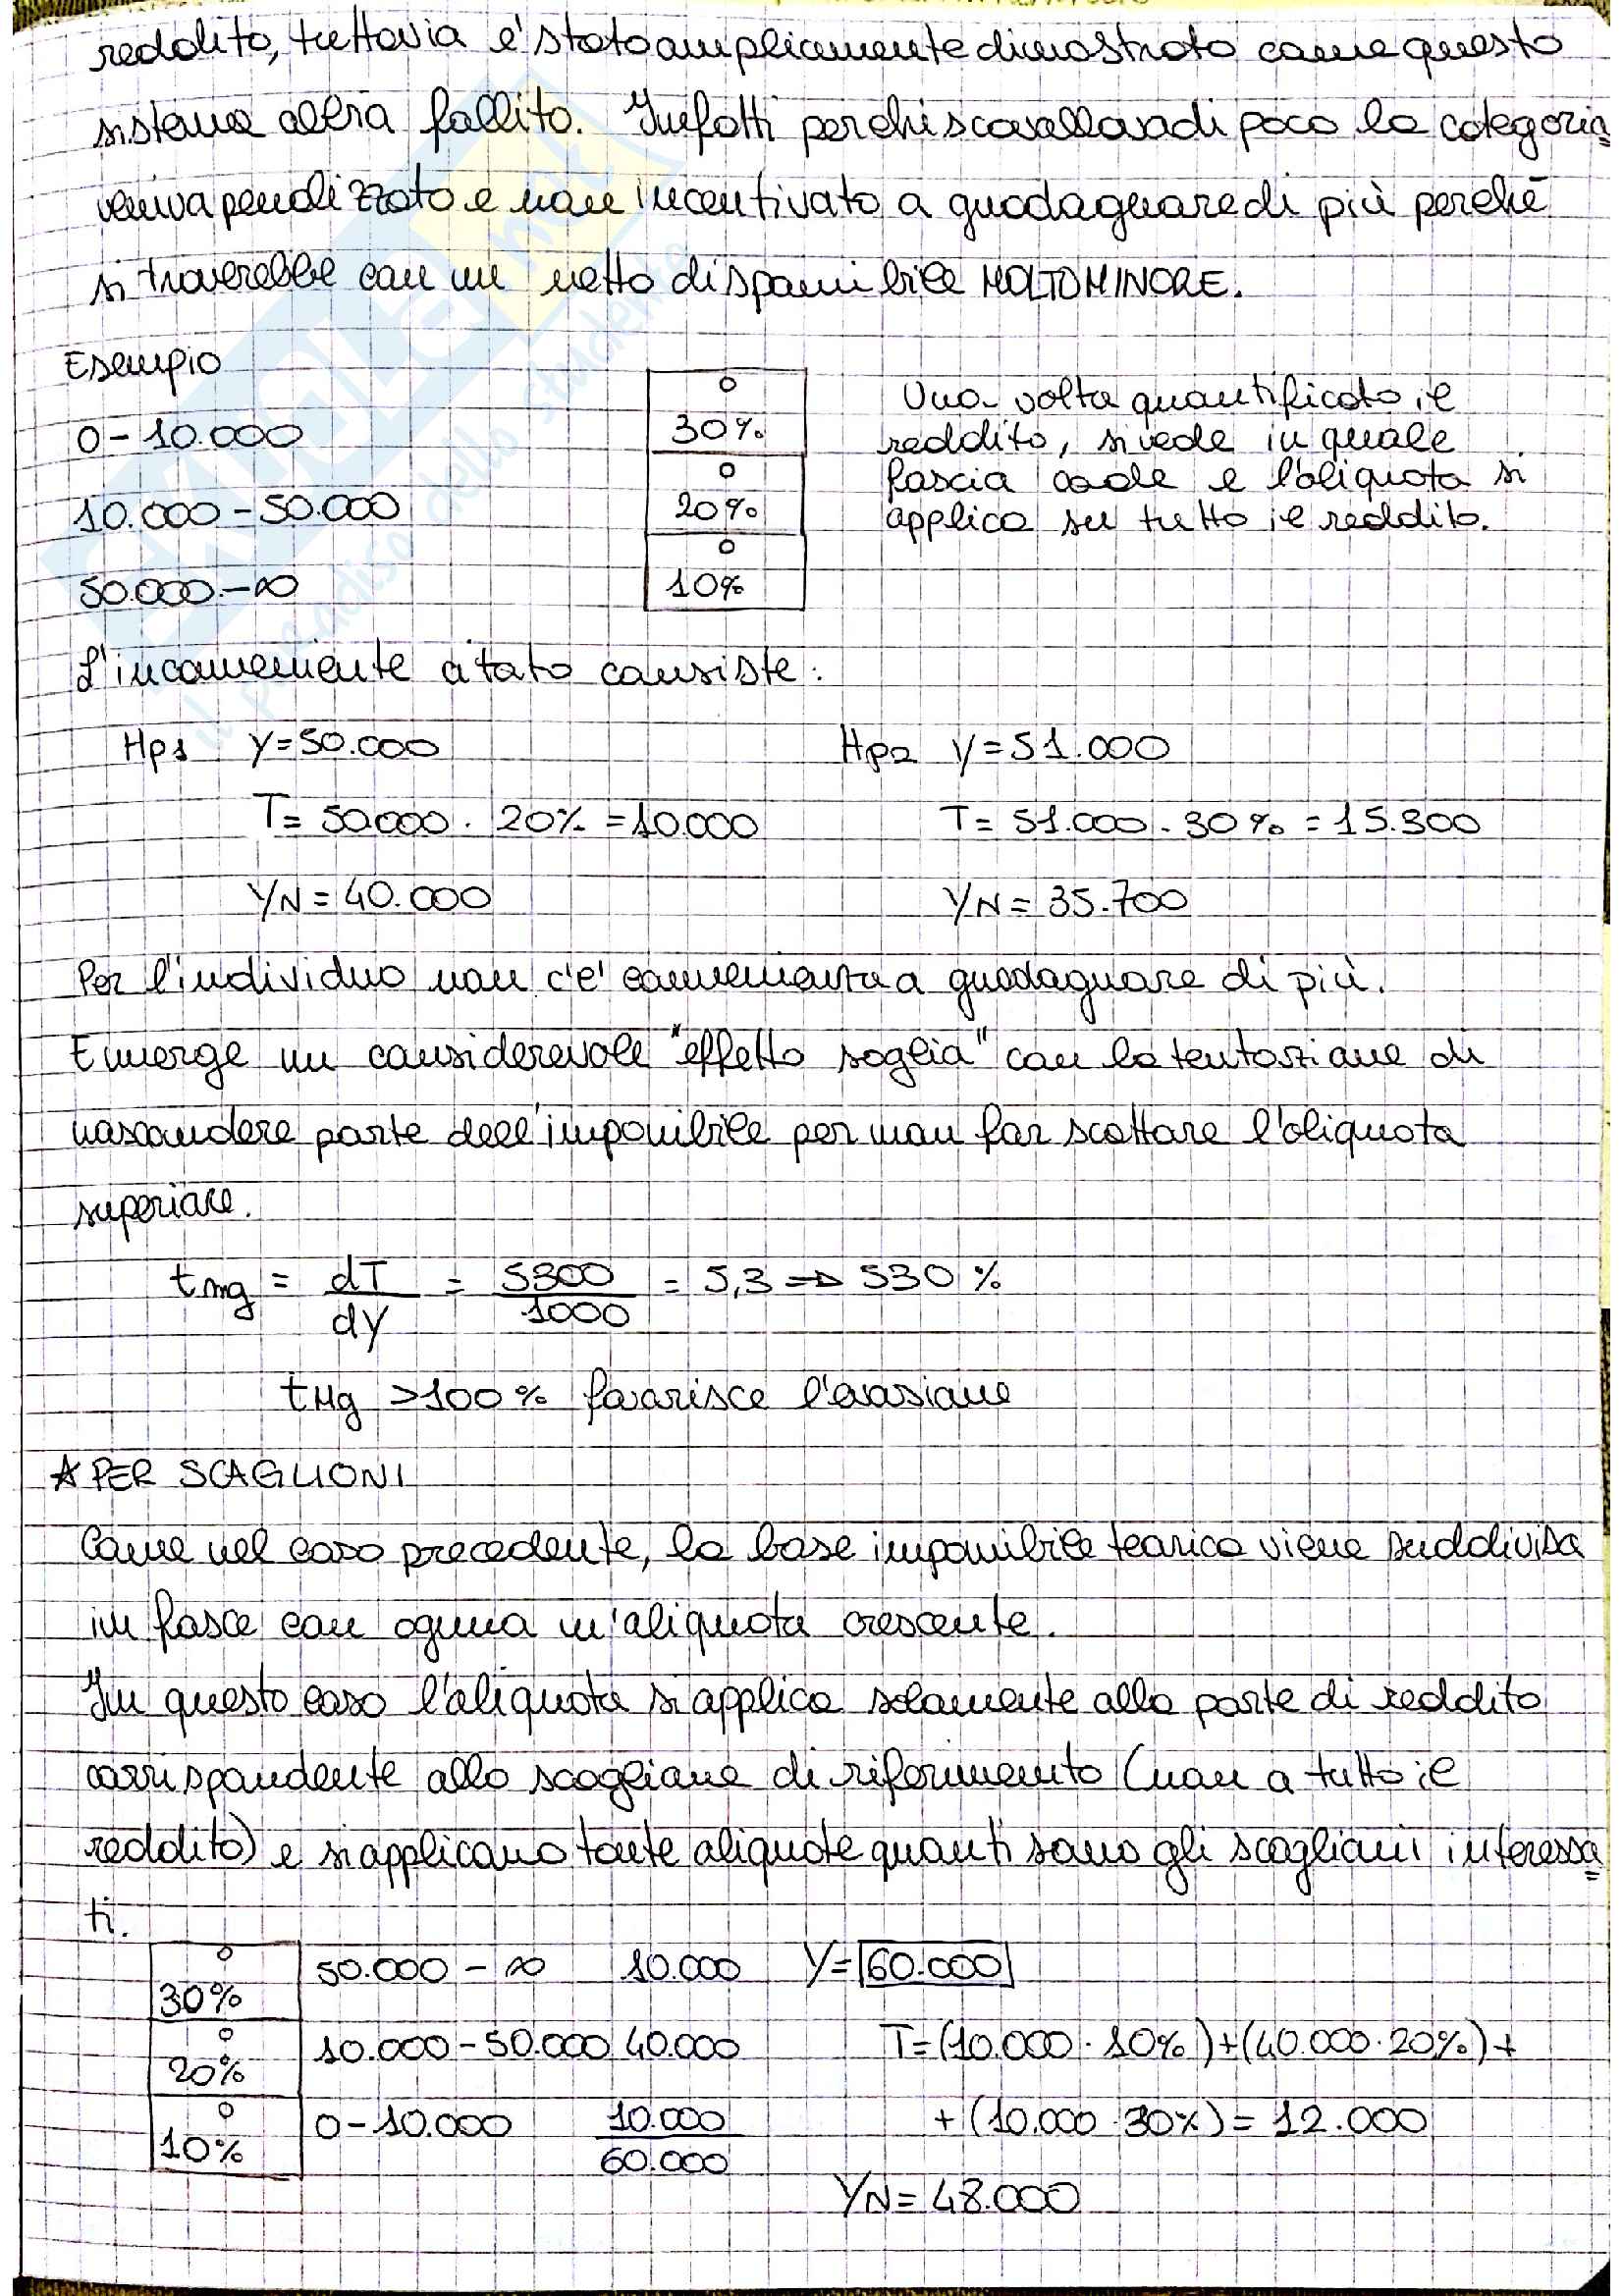 reddito, tuttavia e' stato ampliamente dimostrato come questo
sistema abbia fallito. Infatti perchi scavallava di poco la categoria
veniva penalizzato e non incentivato a guadagnare di più perchè
si troverebbe con un netto disponibile MOLTO MINORE.
Esempio
0 - 10.000
10.000 - 50.000
50.000 - ∞
30%
20%
10%
Una volta quantificato il
reddito, si vede in quale
fascia cade e l'aliquota si
applica su tutto il reddito.
L'inconveniente citato consiste:
Hp1 Y = 50.000
T = 50.000 · 20% = 10.000
YN = 40.000
Hp2 Y = 51.000
T = 51.000 · 30% = 15.300
YN = 35.700
Per l'individuo non c'e' convenienza a guadagnare di più.
Emerge un considerevole "effetto soglia" con la tentazione di
nascondere parte dell'imponibile per non far scattare l'aliquota
superiore.
tmg = dT/dY = 5300/1000 = 5,3 => 530 %
tMg > 100% favorisce l'evasione
☆ PER SCAGLIONI
Come nel caso precedente, la base imponibile teorica viene suddivisa
in fasce con ognuna un'aliquota crescente.
In questo caso l'aliquota si applica solamente alla parte di reddito
corrispondente allo scaglione di riferimento (non a tutto il
reddito) e si applicano tante aliquote quanti sono gli scaglioni interessa=
ti.
30% 50.000 - ∞ 10.000
20% 10.000 - 50.000 40.000
10% 0 - 10.000 10.000
60.000
Y = 60.000
T = (10.000 · 10%) + (40.000 · 20%) +
+ (10.000 · 30%) = 12.000
YN = 48.000
il paradiso dello studente